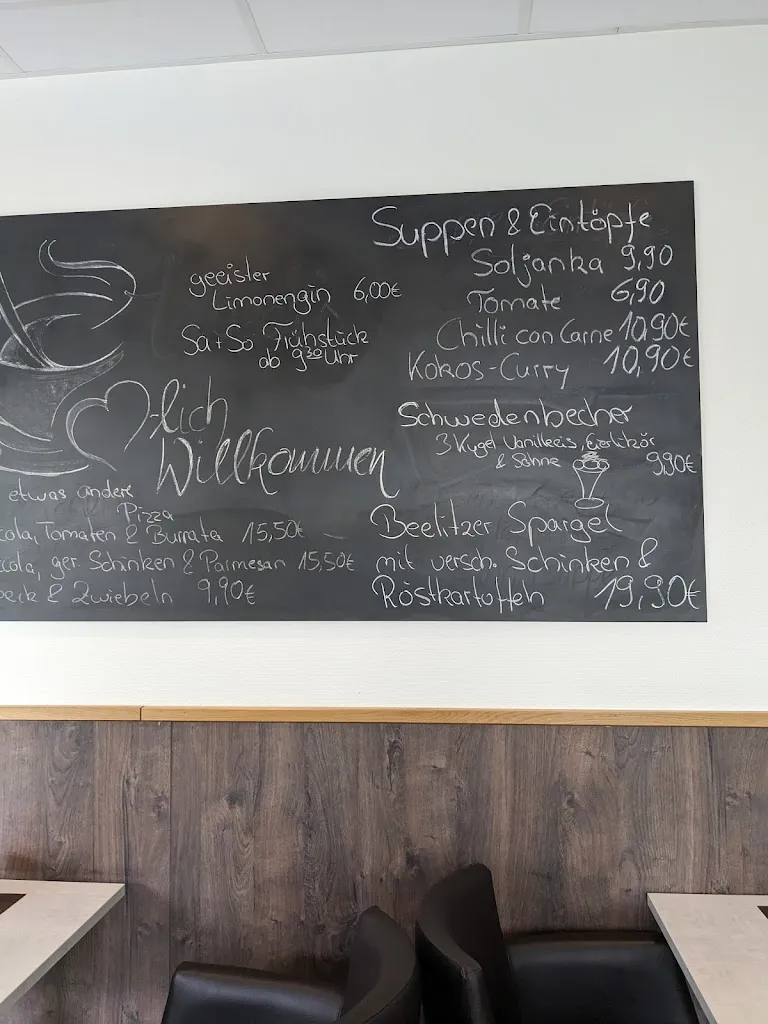 geeister
Limonengin 6,00€
Sa + So Frühstück
ab 9³⁰ Uhr
lich
Willkommen
etwas andere
Pizza
cola, Tomaten & Burrata 15,50€
cola, ger. Schinken & Parmesan 15,50€
peck & Zwiebeln 9,90€
Suppen & Eintöpfe
Soljanka 9,90
Tomate 6,90
Chilli con Carne 10,90€
Kokos-Curry 10,90€
Schwedenbecher
3 Kugel Vanilleeis, Eierlikör
& Sahne 9,90€
Beelitzer Spargel
mit versch. Schinken &
Röstkartoffeln 19,90€